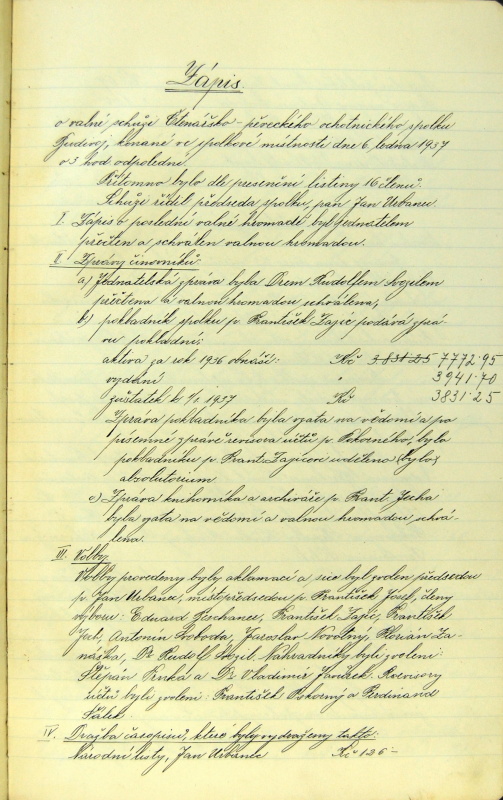 Zápis.
o valné schůzi Čtenářsko-pěveckého ochotnického spolku
konané ve spolkové místnosti dne 6. ledna 1937
o 3 hod odpoledne.
Přítomno bylo dle presenční listiny 16 členů.
Schůzi řídil předseda spolku, pan Jan Urbanec.
I. Zápis o poslední valné hromadě byl jednatelem
přečten a schválen valnou hromadou.
II Zprávy činovníků.
a) Jednatelská zpráva byla Drem Rudolfem
přečtena a valnou hromadou schválena;
b) pokladník spolku p. František Zajíc podává zprá
vu pokladní:
aktiva za rok 1936 obnáší: Kč 3831·25 7772·95
vydání " 3941·70
zůstatek k 1/1. 1937 Kč 3831·25
Zpráva pokladníka byla vzata na vědomí a po
písemné zprávě revisora účtů p. Pokorného, bylo
pokladníku p. Frant. Zajícovi uděleno (bylo)
absolutorium
c) Zpráva knihovníka a archiváře p. Frant.
byla vzata na vědomí a valnou hromadou schvá-
lena.
III. Volby.
Volby provedeny byly aklamací a sice byl zvolen předsedou
p. Jan Urbanec, místopředsedou p. František Josef, členy
výboru: Eduard František Zajíc, František
Antonín Svoboda, Jaroslav Novotný, Florian Za-
Dr Rudolf Náhradníky byli zvoleni:
Štěpán a Dr Vladimír Revisory
účtů byli zvoleni: František Pokorný a Ferdinand
IV. Dražba časopisů, které byly vydraženy takto:
Národní listy, Jan Urbanec Kč 126–